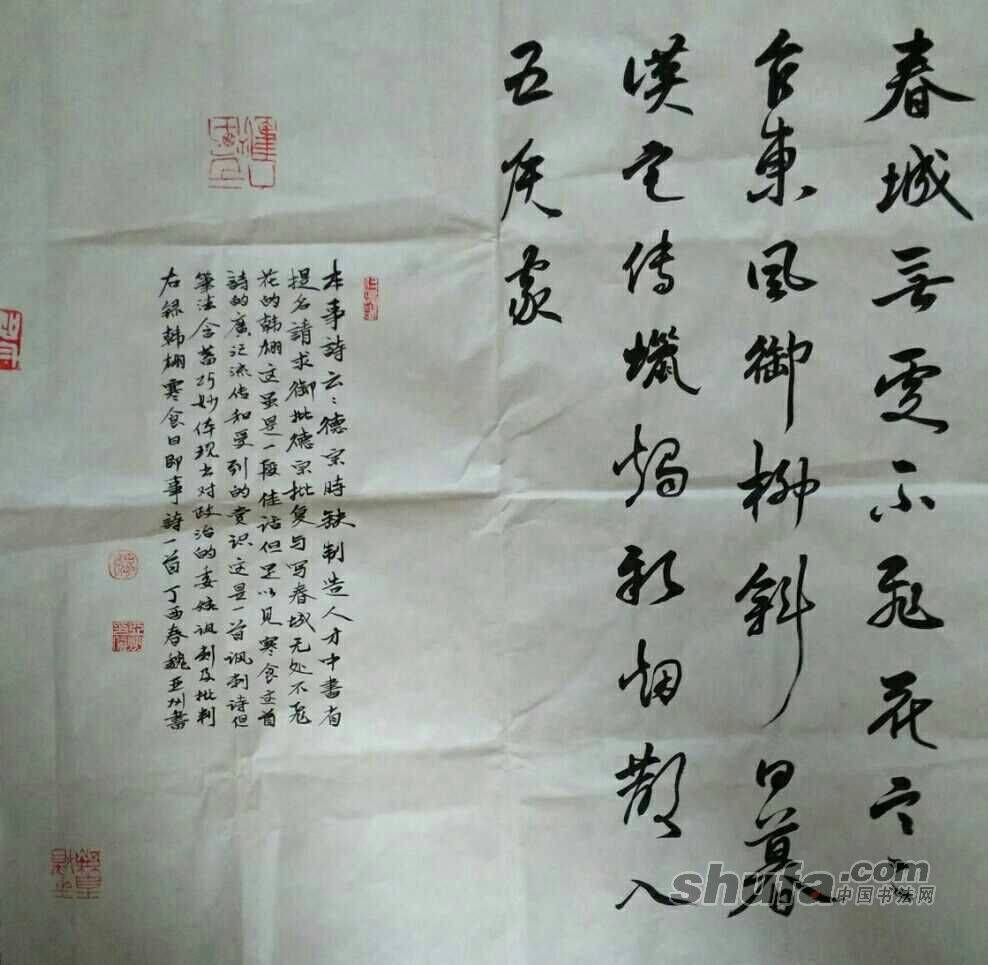 春城無處不飛花寒
食東風御柳斜日暮
漢宮傳蠟燭輕烟散入
五侯家
本事詩云：德宗時缺制造人才中書省
提名請求御批德宗批复与写春城无处不飛
花的韩翃这虽是一段佳话但足以见寒食这首
詩的廣泛流传和受到的赏识这是一首讽刺诗但
筆法含蓄巧妙体现出对政治的委婉讽刺及批判
右録韩翃寒食日即事詩一首丁酉春魏亚州書
shufa.com
中国书法网